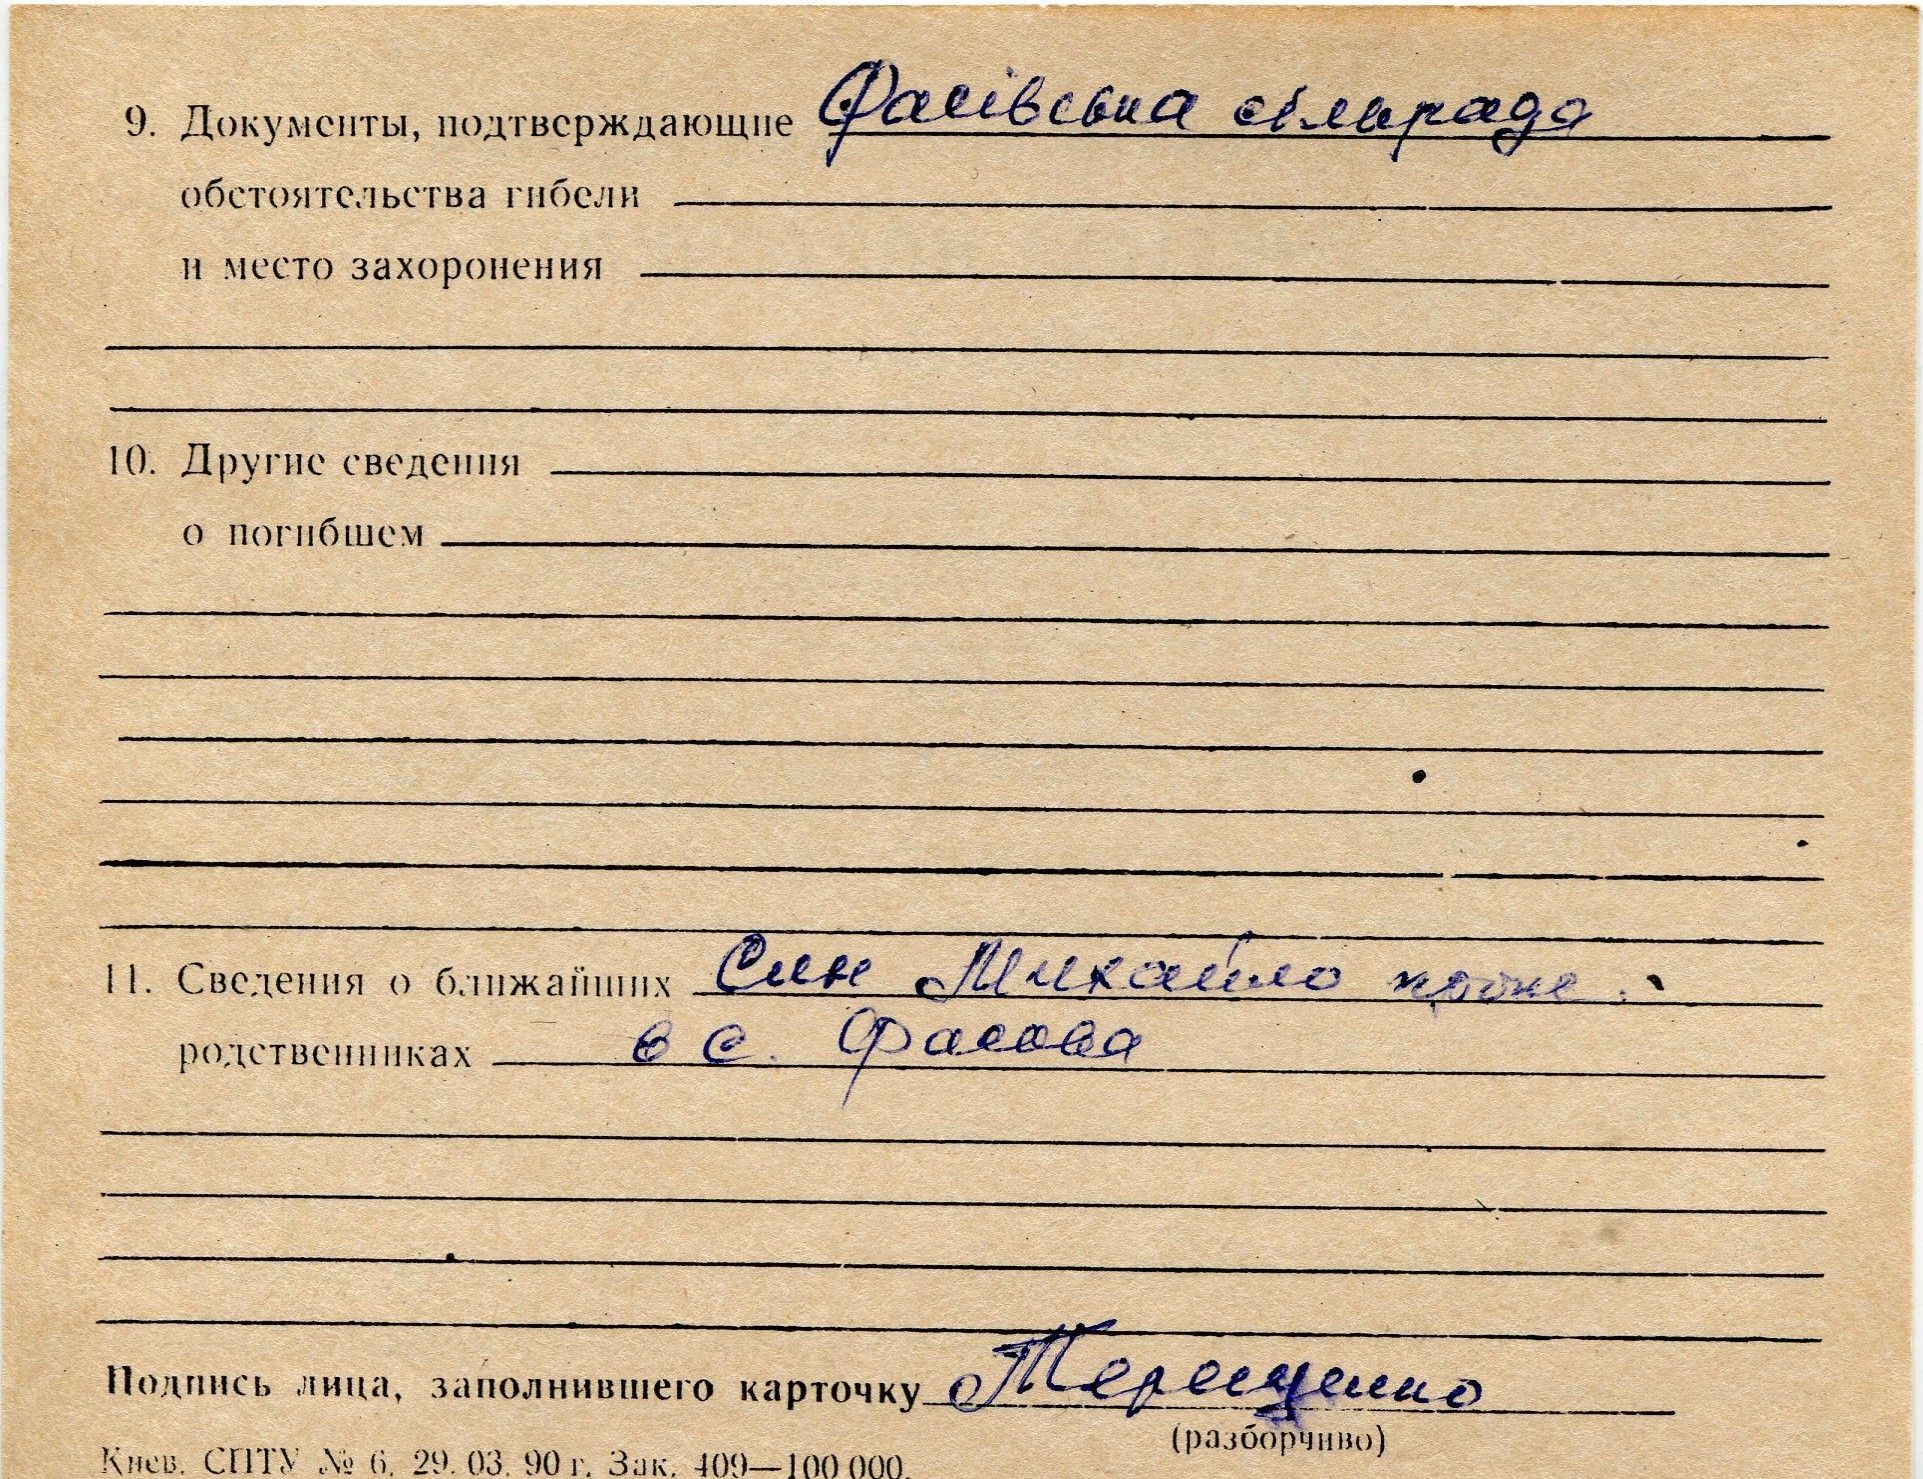 9. Документы, подтверждающие Фасівська сільрада
обстоятельства гибели
и место захоронения
10. Другие сведения
о погибшем
11. Сведения о ближайших Син Михайло
родственниках в с. Фасова
Подпись лица, заполнившего карточку Терещенко
(разборчиво)
Киев. СПТУ № 6. 29. 03. 90 г. Зак. 409—100 000.